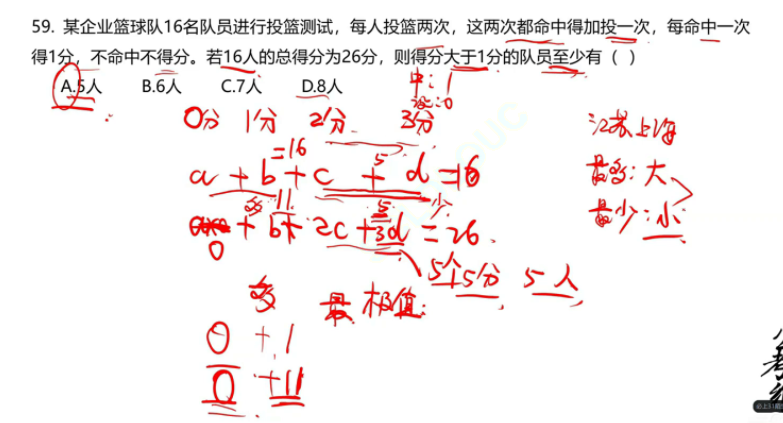 59. 某企业篮球队16名队员进行投篮测试，每人投篮两次，这两次都命中得加投一次，每命中一次
得1分，不命中不得分。若16人的总得分为26分，则得分大于1分的队员至少有（ ）
A.5人 B.6人 C.7人 D.8人
中：1
没：0
0分 1分 2分 3分
江苏上海
=16 5
a + b + c + d = 16
最多：大
多 11 5 少
最少：小
+ b + 2c + 3d = 26
0
5个5分 5人
多 最 极值：
0 + 1
0 + 11